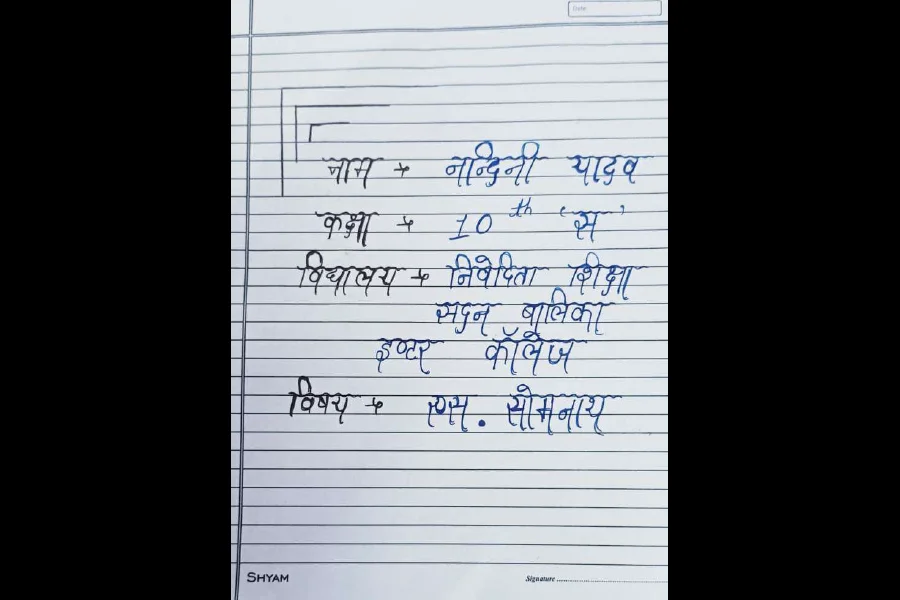 Date
नाम → नन्दिनी यादव
कक्षा → 10th 'स'
विद्यालय → निवेदिता शिक्षा
सदन बालिका
इण्टर कॉलेज
विषय → एस. सोमनाथ
SHYAM
Signature